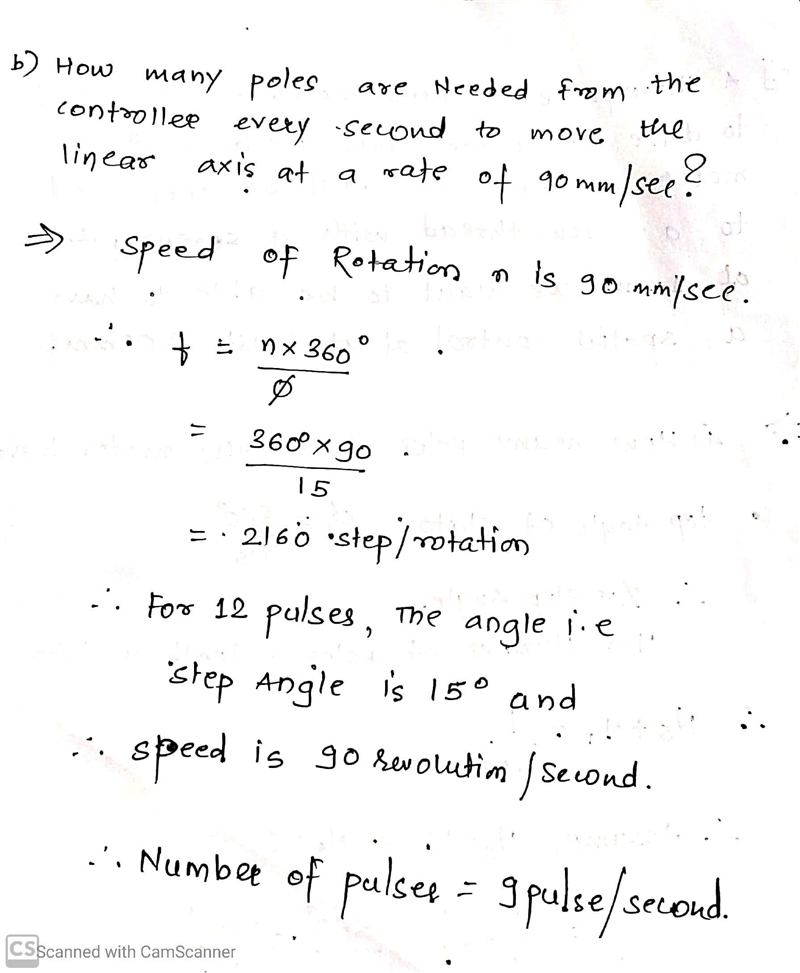 b) How many poles are Needed from the
controllee every second to move the
linear axis at a rate of 90 mm/see?
⇒ Speed of Rotation n is 90 mm/see.
∴ f = n x 360°
ϕ
= 360° x 90
15
= 2160 step/rotation
∴ For 12 pulses, The angle i.e
step Angle is 15° and
∴ speed is 90 revolution/second.
∴ Number of pulses = 9 pulse/second.
CS Scanned with CamScanner